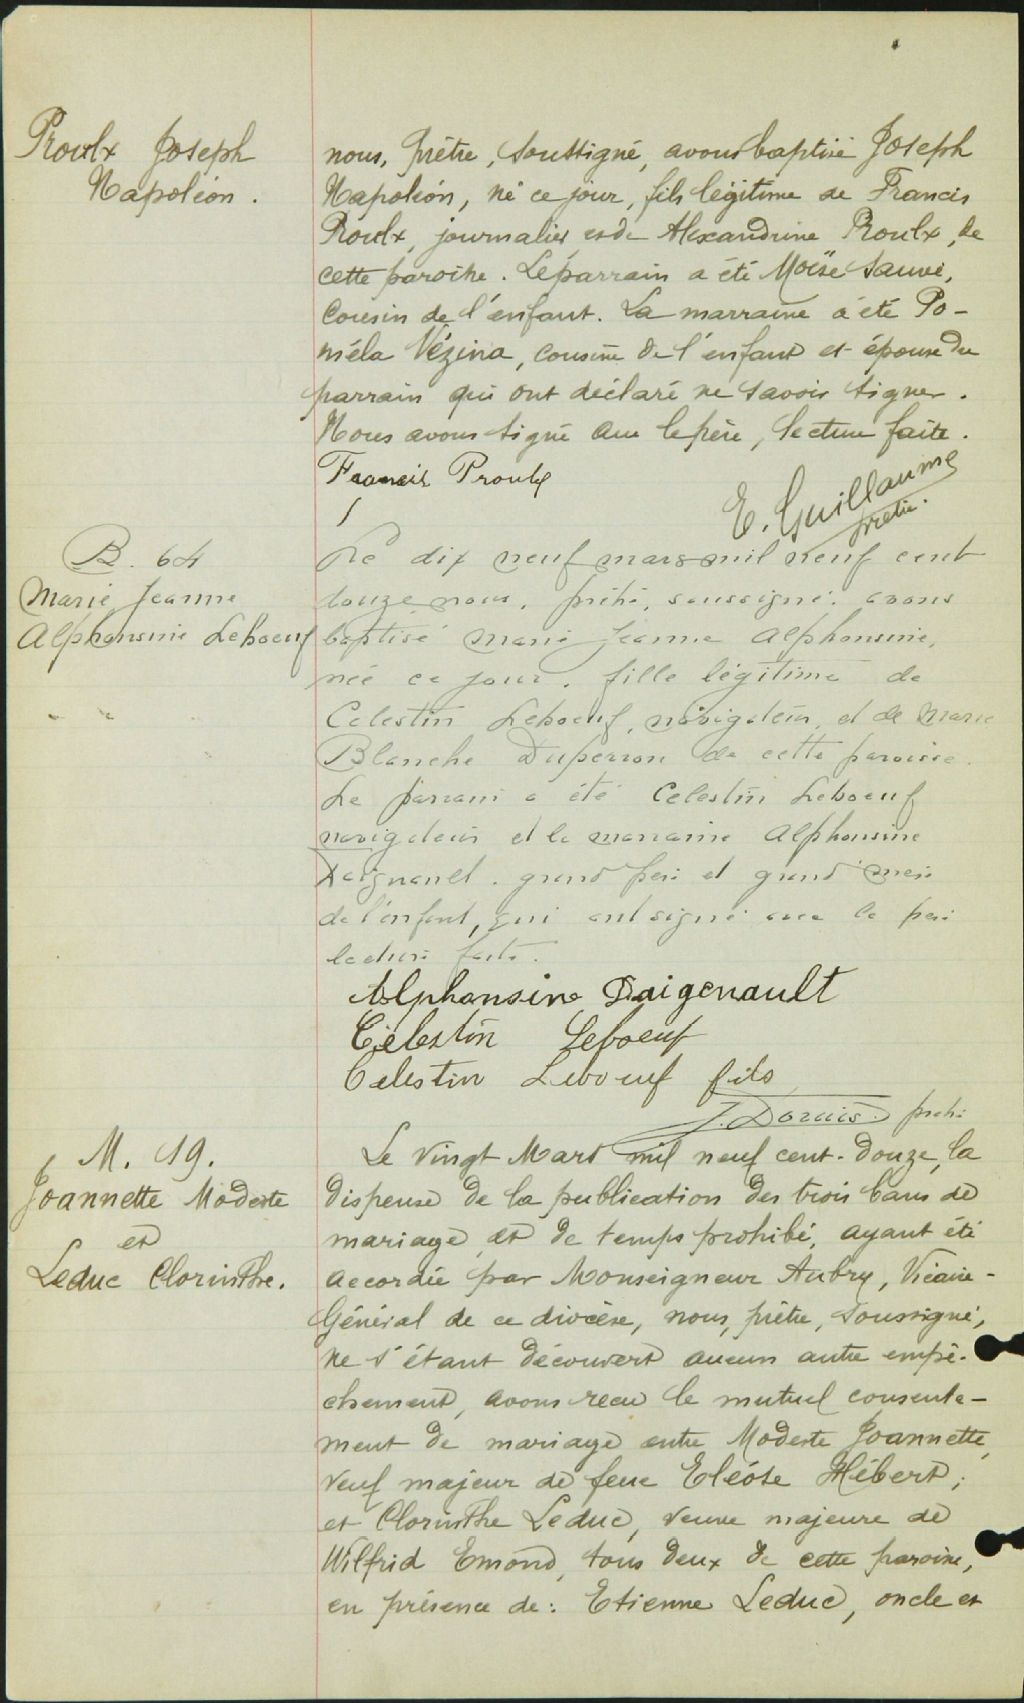 Proulx Joseph
Napoléon.
nous, prêtre, soussigné, avons baptisé Joseph
Napoléon, né ce jour, fils légitime de Francis
Proulx, journalier et de Alexandrine Proulx, de
cette paroisse. Le parrain a été Moïse Sauvé,
Cousin de l'enfant. La marraine a été Po-
méla Vézina, cousine de l'enfant et épouse du
parrain qui ont déclaré ne savoir signer.
Nous avons signé avec le père, lecture faite.
Francis Proulx
E. Guillaume
prêtre.
B. 64
Marie Jeanne
Alphonsine Leboeuf
Le dix neuf mars mil neuf cent
douze nous, prêtre, soussigné, avons
baptisé Marie Jeanne Alphonsine,
née ce jour, fille légitime de
Celestin Leboeuf, navigateur, et de Marie
Blanche Duperron de cette paroisse.
Le parrain a été Celestin Leboeuf
navigateur et la marraine Alphonsine
Daignault. grand père et grand'mère
de l'enfant, qui ont signé avec le père
lecture faite.
Alphonsine Daigenault
Célestin Leboeuf
Celestin Leboeuf fils
J. Dorais prêtre
M. 19.
Joannette Modeste
et
Leduc Clorinthe.
Le vingt Mars mil neuf cent-douze, la
dispense de la publication des trois bans de
mariage et de temps prohibé, ayant été
accordée par Monseigneur Aubry, Vicaire-
Général de ce diocèse, nous, prêtre, soussigné,
ne s'étant découvert aucun autre empê-
chement, avons reçu le mutuel consente-
ment de mariage entre Modeste Joannette,
veuf majeur de feue Eléose Hébert;
et Clorinthe Leduc, veuve majeure de
Wilfrid Emond, tous deux de cette paroisse,
en présence de: Etienne Leduc, oncle et